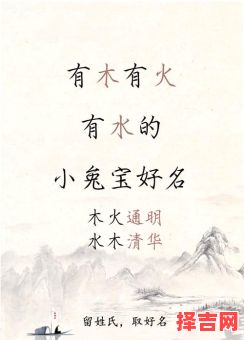 有木有火
有水的
小兔宝好名
木火通明
水木清华
留姓氏，取好名
择吉网